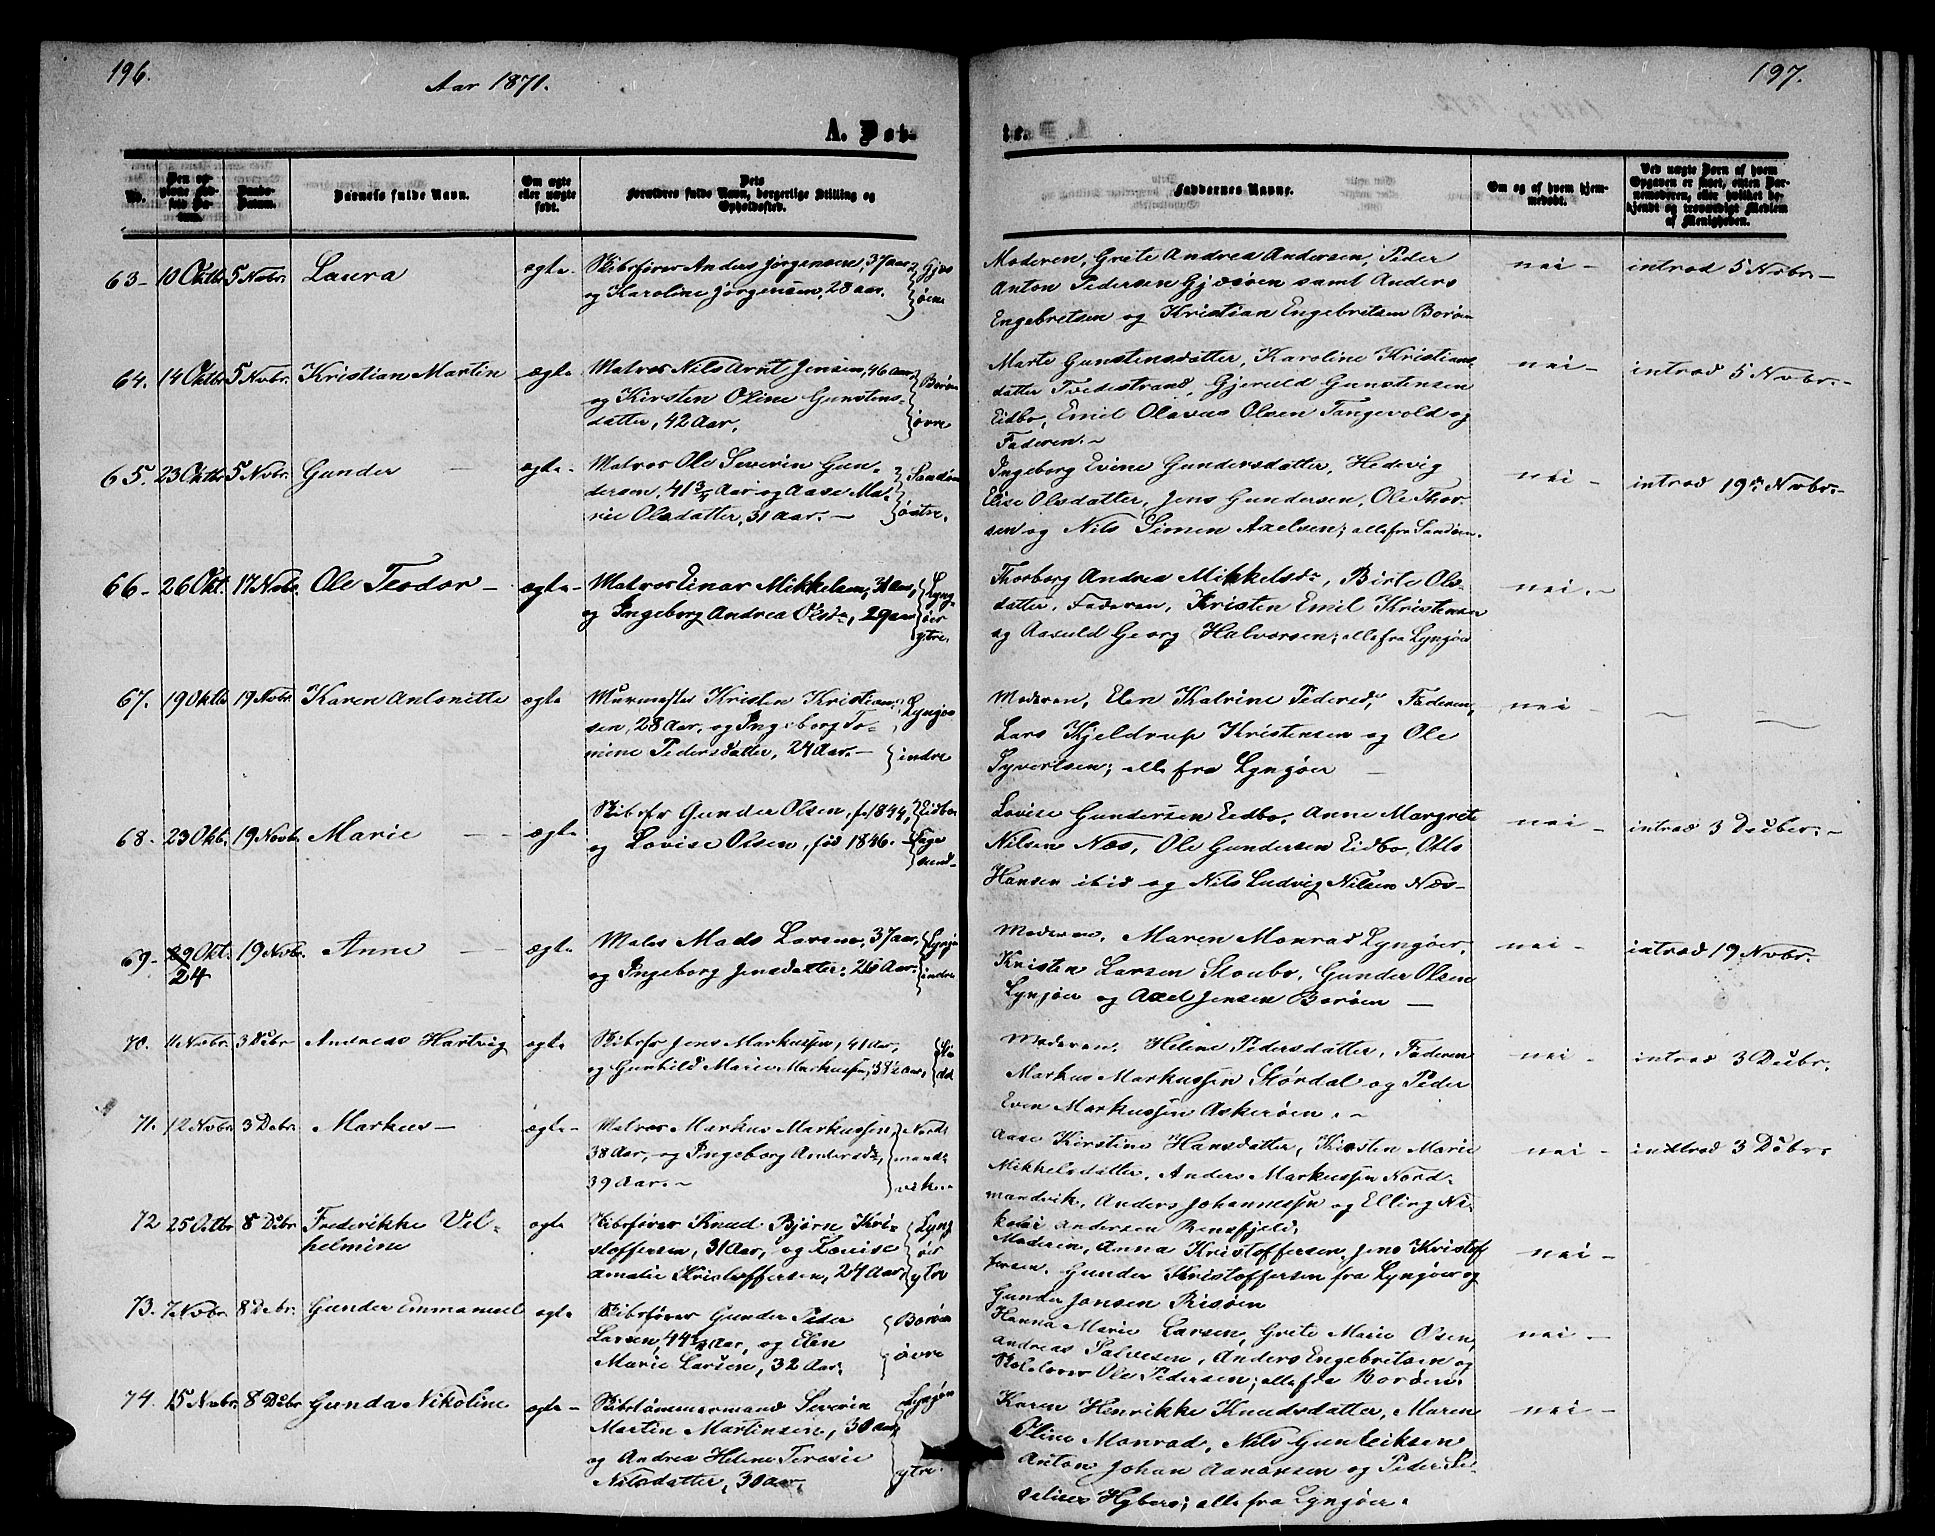 196.
Aar 1871.
197.
A. Døb-
te.
No.
Den op-
givne Fød-
sels Da-
tum.
Daabs-
Datum.
Barnets fulde Navn.
Om ægte
eller uægte
født.
Dets
Forældres fulde Navn, borgerlige Stilling og
Opholdssted.
Faddernes Navne.
Om og af hvem hjem-
medøbt.
Ved uægte Børn af hvem
Opgaven er skeet, enten Bar-
nemoderen, eller hvilket be-
kjendt og troværdigt Medlem
af Menigheden.
63- 10 Oktbr 5 Nvbr. Laura ægte Skibsfører Anders Jørgensen, 37 aar
og Karoline Jørgensen, 28 aar.
Gjes
øen
Moderen, Grete Andrea Andersen, Peder
Anton Pedersen Gjæsøen samt Anders
Engebretsen og Kristian Engebretsen Borøen
nei - introd 5 Nvbr.-
64. 14 Oktbr 5 Nvbr. Kristian Martin ægte Matros Nils Arnt Jensen, 46 aar
og Kirsten Oline Gunstens-
datter, 42 Aar.
Borøen
øvre
Marte Gunstensdatter, Karoline Kristians
datter Tvedestrand, Gjeruld Gunstensen
Eidbo, Emil Olavus Olsen Tangevold og
Faderen.-
nei - introd 5 Nvbr.-
65. 23 Oktbr 5 Nvbr. Gunder - ægte- Matros Ole Severin Gun-
dersen, 41 3/4 Aar og Aase Ma-
rie Olsdatter, 31 aar.-
Sandøen
østre.
Ingeborg Evine Gundersdatter, Hedevig
Elise Olsdatter, Jens Gundersen, Ole Thor-
sen og Nils Simen Axelsen; alle fra Sandøen.
nei - introd 19de Nvbr.-
66- 26 Okt. 17 Novbr. Ole Teodor - ægte- Matros Einar Mikkelsen, 31 aar,
og Ingeborg Andrea Olsdr, 29 aar
Lyng-
øer
ytre.
Thorborg Andrea Mikkelsdr, Birte Ols-
datter, Faderen, Kristen Emil Kristensen
og Aasuld Georg Halvorsen; alle fra Lyngøer
nei.-
67. 19 Oktbr 19 Nvbr. Karen Antonette ægte Murmester Kristen Kristian-
sen, 28 Aar, og Ingeborg To-
mine Pedersdatter, 24 Aar.-
Lyngøer
indre
Moderen, Elen Katrine Pedersdr, Faderen,
Lars Kjeldrup Kristensen og Ole
Syvertsen; alle fra Lyngøer -
nei - - -
68. 23 Okt. 19 Novb. Marie - - ægte Skibsfør Gunder Olsen, f. 1844,
og Lovise Olsen, fød 1846.-
Eidbo
sund-
Lovise Gundersen Eidbo, Anne Margrete
Nilsen Næs, Ole Gundersen Eidbo, Otto
Hansen ibid og Nils Ludvig Nilsen Næs-
nei - introd 3 Decbr.-
69- 29 Okt. 19 Nvbr. Anne - - ægte
24
Matros Mads Larsen, 37 aar,
og Ingeborg Jensdatter, 26 Aar.
Lyngøer
indre
Moderen, Maren Monrad Lyngøer,
Kristen Larsen Stoubo, Gunder Olsen
Lyngøer og Axel Jensen Borøen -
nei - introd 19 Nvbr.
70. 11 Novbr. 3 Dcbr Andreas Hartvig ægte Skibsfør Jens Markussen, 41 Aar,
og Gunhild Marie Markussen, 38½ aar.
Stø
dal
Moderen, Helene Pedersdatter, Faderen
Markus Markussen Størdal og Peder
Even Markussen Askerøen.-
nei - introd 3 Decbr.
71. 12 Nvbr 3 Debr. Markus - ægte- Matros Markus Markussen,
38 Aar, og Ingeborg Andersdr,
39 Aar.-
Nord-
mands
vik.-
Aase Kirstine Hansdatter, Kirsten Marie
Mikkelsdatter, Anders Markussen Nord-
mandsvik, Anders Johannessen og Elling Ni-
kolai Andersen Rensfjeld.
nei - indtrod 3 Dcbr-
72 25 Octbr 8 Dcbr Frederikke Vel-
helmine
ægte Skibsfører Knud Bjørn Kri-
stoffersen, 31 Aar, og Louise
Amalie Kristoffersen, 27 Aar.
Lyng
øer
ytre
Moderen, Anna Kristoffersen, Jens Kristof
fersen, Gunder Kristoffersen fra Lyngøer og
Gunder Jonsen Risøen
nei -
73. 7 Nvbr. 8 Debr. Gunder Emmanuel ægte Skibsfører Gunder Peder
Larsen, 44½ Aar, og Elen
Marie Larsen, 32 Aar.
Borøen
øvre
Hanna Marie Larsen, Grete Marie Olsen,
Andreas Salvesen, Anders Engebretsen og
Skolelærer Ole Pedersen; alle fra Borøen.
nei -
74. 15 Nvbr. 8 Dcbr Gunda Nikoline ægte - Skibstømmermand Severin
Martin Martinsen, 30 aar,
og Andrea Helene Teresie
Nilsdatter, 30 aar.
Lyngøer
ytre.
Karen Henrikke Knudsdatter, Maren
Oline Monrad, Nils Gunleiksen
Anton Johan Aanonsen og Peder
Hyberg; alle fra Lyngøer.
nei -